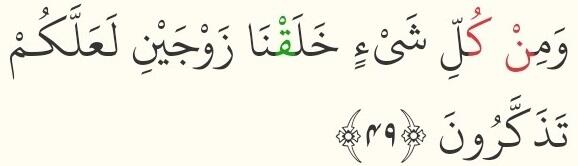 وَمِنْ كُلِّ شَىْءٍ خَلَقْنَا زَوْجَيْنِ لَعَلَّكُمْ
تَذَكَّرُونَ ﴿۴۹﴾